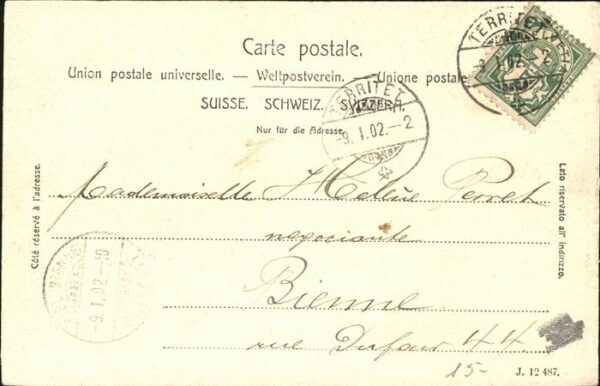 Carte postale.
Union postale universelle. — Weltpostverein. — Unione postale
SUISSE. SCHWEIZ. SVIZZERA.
Nur für die Adresse.
TERRITET
-9. I. 02. - 2
TERRITET
-9. I. 02. - 2
Côté réservé à l'adresse.
Lato riservato all' indirizzo.
Mademoiselle Hélène Perret
negociante
Bienne
rue Dufour 44
-9. I. 02. - 10
15-
J. 12 487.